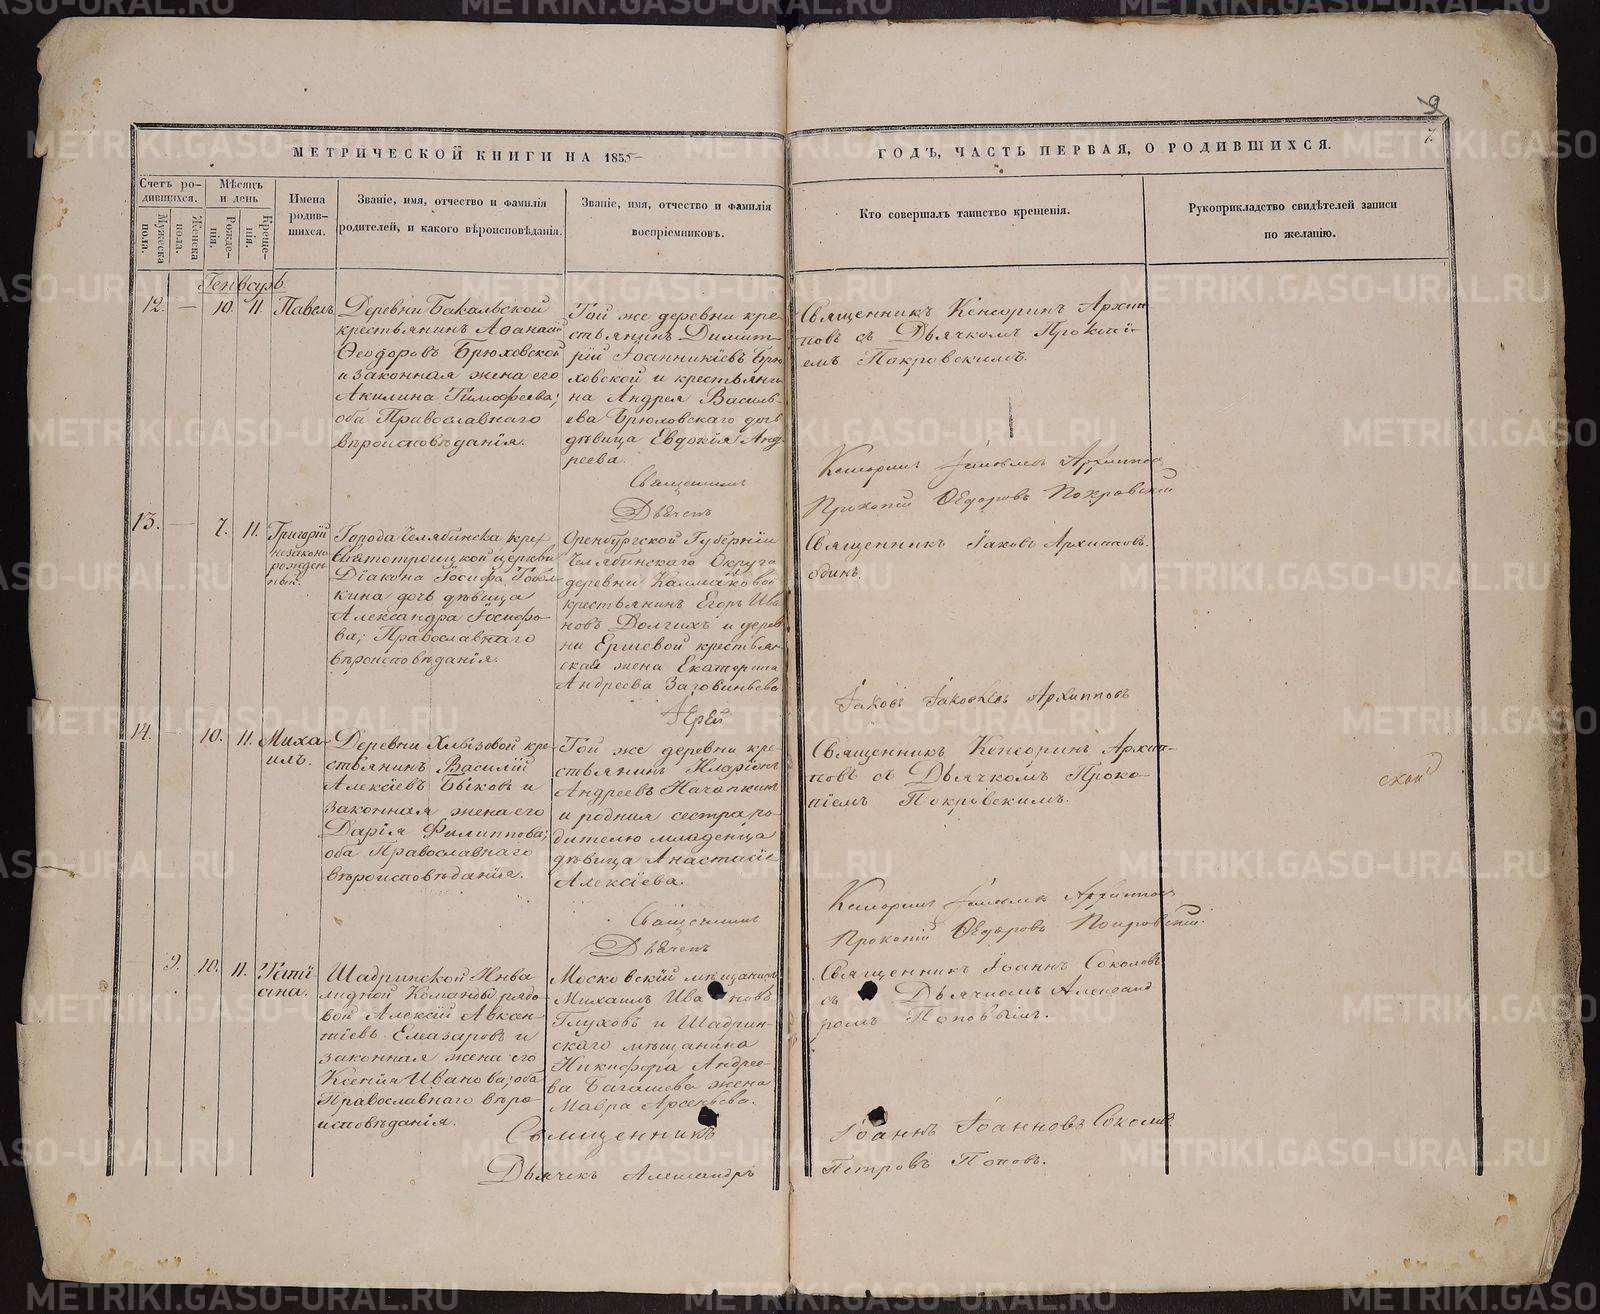 9
7.
МЕТРИЧЕСКОЙ КНИГИ НА 1855
ГОДЪ, ЧАСТЬ ПЕРВАЯ, О РОДИВШИХСЯ.
Счетъ родившихся.
Мужеска пола.
Женска пола.
Мѣсяцъ и день
Рожденія.
Крещенія.
Имена родившихся.
Званіе, имя, отчество и фамилія
родителей, и какого вѣроисповѣданія.
Званіе, имя, отчество и фамилія
воспріемниковъ.
Кто совершалъ таинство крещенія.
Рукоприкладство свидѣтелей записи
по желанію.
Генварь.
12. — 10. 11. Павелъ
Деревни Бакальской
крестьянинъ Аѳанасій
Ѳеодоровъ Брюховской
и законная жена его
Акилина Тимофеева;
оба Православнаго
вѣроисповѣданія.
Той же деревни кре-
стьянинъ Димит-
рій Іоанникіевъ Брю-
ховской и крестьяни-
на Андрея Василь-
ева Брюховскаго дочь
дѣвица Евдокія Анд-
реева.
Священникъ Кенсоринъ Архип-
повъ съ Дьячкомъ Прокопі-
емъ Покровскимъ.
Священникъ
Дьячекъ
Кенсоринъ Архипповъ
Прокопій Ѳедоровъ Покровскій
13. — 7. 11. Григорій
незаконо-
рожден-
ный.
Города Челябинска
Святотроицкой церкви
Діакона Іосифа
кина дочь дѣвица
Александра Іосифо-
ва; Православнаго
вѣроисповѣданія.
Оренбургской Губерніи
Челябинскаго Округа
деревни Калмаковой
крестьянинъ Егоръ Ива-
новъ Долгихъ и дерев-
ни Ершевой крестьян-
ская жена Екатерина
Андреева
Священникъ Іаковъ Архипповъ
одинъ.
Іерей
Іаковъ Іаковлевъ Архипповъ
14. — 10. 11. Миха-
илъ.
Деревни Хлызовой кре-
стьянинъ Василій
Алексіевъ Быковъ и
законная жена его
Дарія Филиппова;
оба Православнаго
вѣроисповѣданія.
Той же деревни кре-
стьянинъ Иларіонъ
Андреевъ Начапкинъ
и родная сестра ро-
дителю младенца
дѣвица Анастасія
Алексіева.
Священникъ Кенсоринъ Архип-
повъ съ Дьячкомъ Проко-
піемъ Покровскимъ.
Священникъ
Дьячекъ
Кенсоринъ Архипповъ
Прокопій Ѳедоровъ Покровскій
9. 10. 11. Таті-
ана.
Шадринской Инва-
лидной Команды рядо-
вой Алексій Авксен-
тіевъ Елеазаровъ и
законная жена его
Ксенія Иванова; оба
Православнаго вѣро-
исповѣданія.
Московскій мѣщанинъ
Михаилъ Ивановъ
Глуховъ и Шадрин-
скаго мѣщанина
Никифора Андрее-
ва Багашева жена
Мавра Арсеньева.
Священникъ Іоаннъ Соколовъ
съ Дьячкомъ Александ-
ромъ Поповымъ.
Священникъ
Іоаннъ Іоанновъ Соколовъ
Дьячекъ Александръ
Петровъ Поповъ.
METRIKI.GASO-URAL.RU